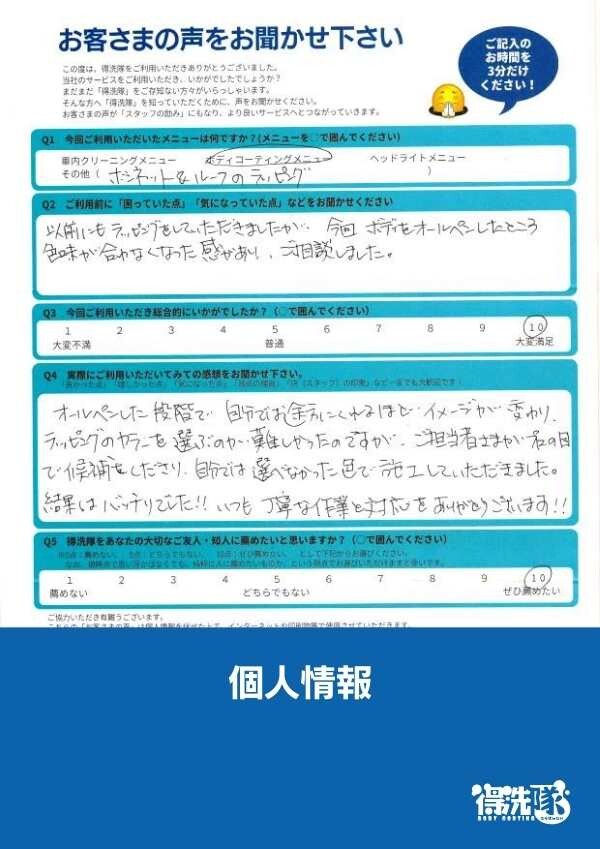 お客さまの声をお聞かせ下さい
ご記入の
お時間を
3分だけ
ください！
この度は、得洗隊をご利用いただきありがとうございました。
当社のサービスをご利用いただき、いかがでしたでしょうか？
まだまだ「得洗隊」をご存知ない方々がいらっしゃいます。
そんな方へ「得洗隊」を知っていただくために、声をお聞かせください。
お客さまの声が「スタッフの励み」にもなり、より良いサービスへとつながっていきます。
Q1 今回ご利用いただいたメニューは何ですか？(メニューを○で囲んでください)
車内クリーニングメニュー ボディコーティングメニュー ヘッドライトメニュー
その他（ ボンネット&ルーフのラッピング ）
Q2 ご利用前に「困っていた点」「気になっていた点」などをお聞かせください
以前にもラッピングをしていただきましたが、今回 ボディをオールペンしたところ
色味が合わなくなった感があり、ご相談しました。
Q3 今回ご利用いただき総合的にいかがでしたか？（○で囲んでください）
1 2 3 4 5 6 7 8 9 10
大変不満 普通 大変満足
Q4 実際にご利用いただいてみての感想をお聞かせ下さい。
オールペンした段階で 自分では途方にくれるほど イメージが 変わり、
ラッピングのカラーを選ぶのが 難しかったのですが、ご担当者さまが プロの目
で候補をくださり、自分では選べなかった色で 施工していただきました。
結果は バッチリでした!! いつも 丁寧な作業と対応をありがとうございます!!
Q5 得洗隊をあなたの大切なご友人・知人に薦めたいと思いますか？（○で囲んでください）
1 2 3 4 5 6 7 8 9 10
薦めない どちらでもない ぜひ薦めたい
ご協力いただき有難うございます。
個人情報
得洗隊
BODY COATING